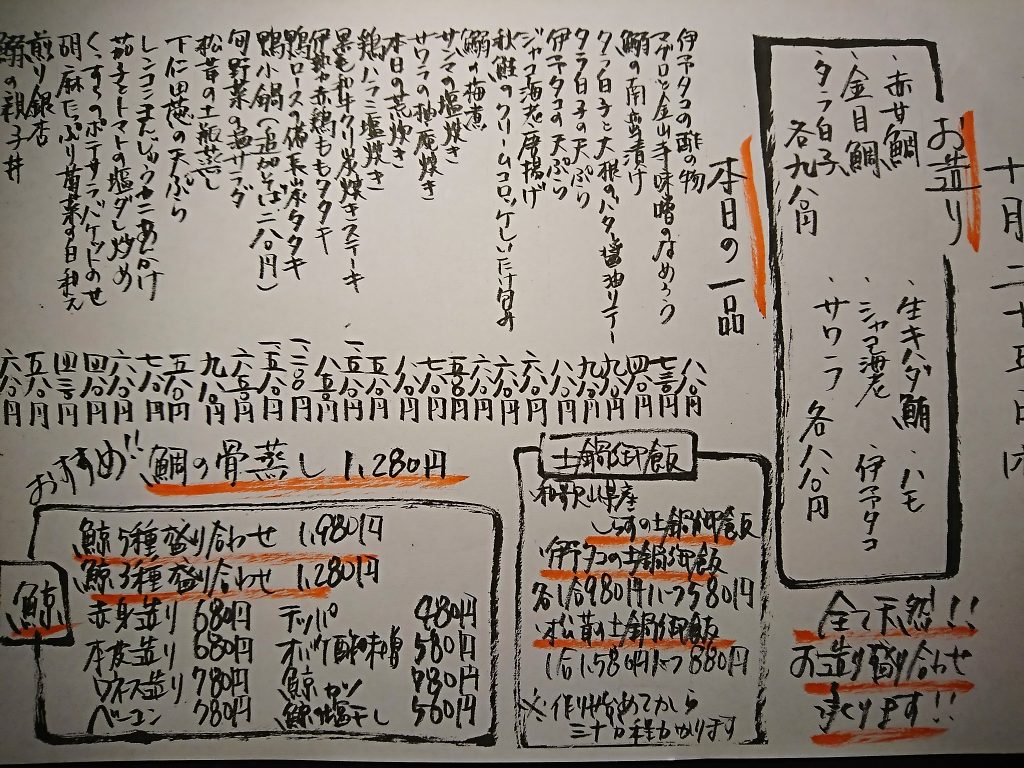 十月二十五日
お造り
・赤甘鯛
・金目鯛
・タラ白子
各九八〇円
・生キハダ鮪 ・ハモ
・ジャコ海老 ・伊予タコ
・サワラ 各八八〇円
全て天然!!
お造り盛り合わせ
承ります!!
本日の一品
伊予タコの酢の物 八八〇円
マグロと金山寺味噌のなめろう 七三〇円
鰯の南蛮漬け 四八〇円
タラ白子と大根のバタ醤油ソテー 九八〇円
タラ白子の天ぷら 九八〇円
伊予タコの天ぷら 八八〇円
ジャコ海老唐揚げ 六八〇円
秋鮭のクリームコロッケしいたけ包み 六八〇円
鰯の梅煮 六八〇円
サンマの塩焼き 五五〇円
サワラの柚庵焼き 七八〇円
本日の荒炊き 八八〇円
鶏ハラミ塩焼き 五八〇円
黒毛和牛クリ炭焼きステーキ 一五八〇円
伊勢赤鶏ももタタキ 八五〇円
鴨ロースの備長炭タタキ 一二八〇円
鴨小鍋(追加そば二八〇円) 一五八〇円
旬野菜の塩サラダ 六五〇円
松茸の土瓶蒸し 九八〇円
下仁田葱の天ぷら 五八〇円
レンコンまんじゅうカニあんかけ 七八〇円
茄子とトマトの塩ダレ炒め 六八〇円
くんすけのポテサラバケットのせ 四八〇円
胡麻たっぷり菊菜の白和え 四三〇円
煎り銀杏 五八〇円
鰯の親子丼 六八〇円
おすすめ!! 鯛の骨蒸し 1,280円
土鍋御飯
・和歌山県産
しらすの土鍋御飯
・伊予タコの土鍋御飯
各1合980円ハーフ580円
・松茸の土鍋御飯
1合1,580円ハーフ880円
※作り始めてから
三十分程かかります
鯨
鯨5種盛り合わせ 1,980円
鯨3種盛り合わせ 1,280円
赤身造り 680円
本皮造り 680円
ウネス造り 780円
ベーコン 780円
テッパ 480円
オバケ酢味噌 580円
鯨カツ 780円
鯨の塩干し 580円